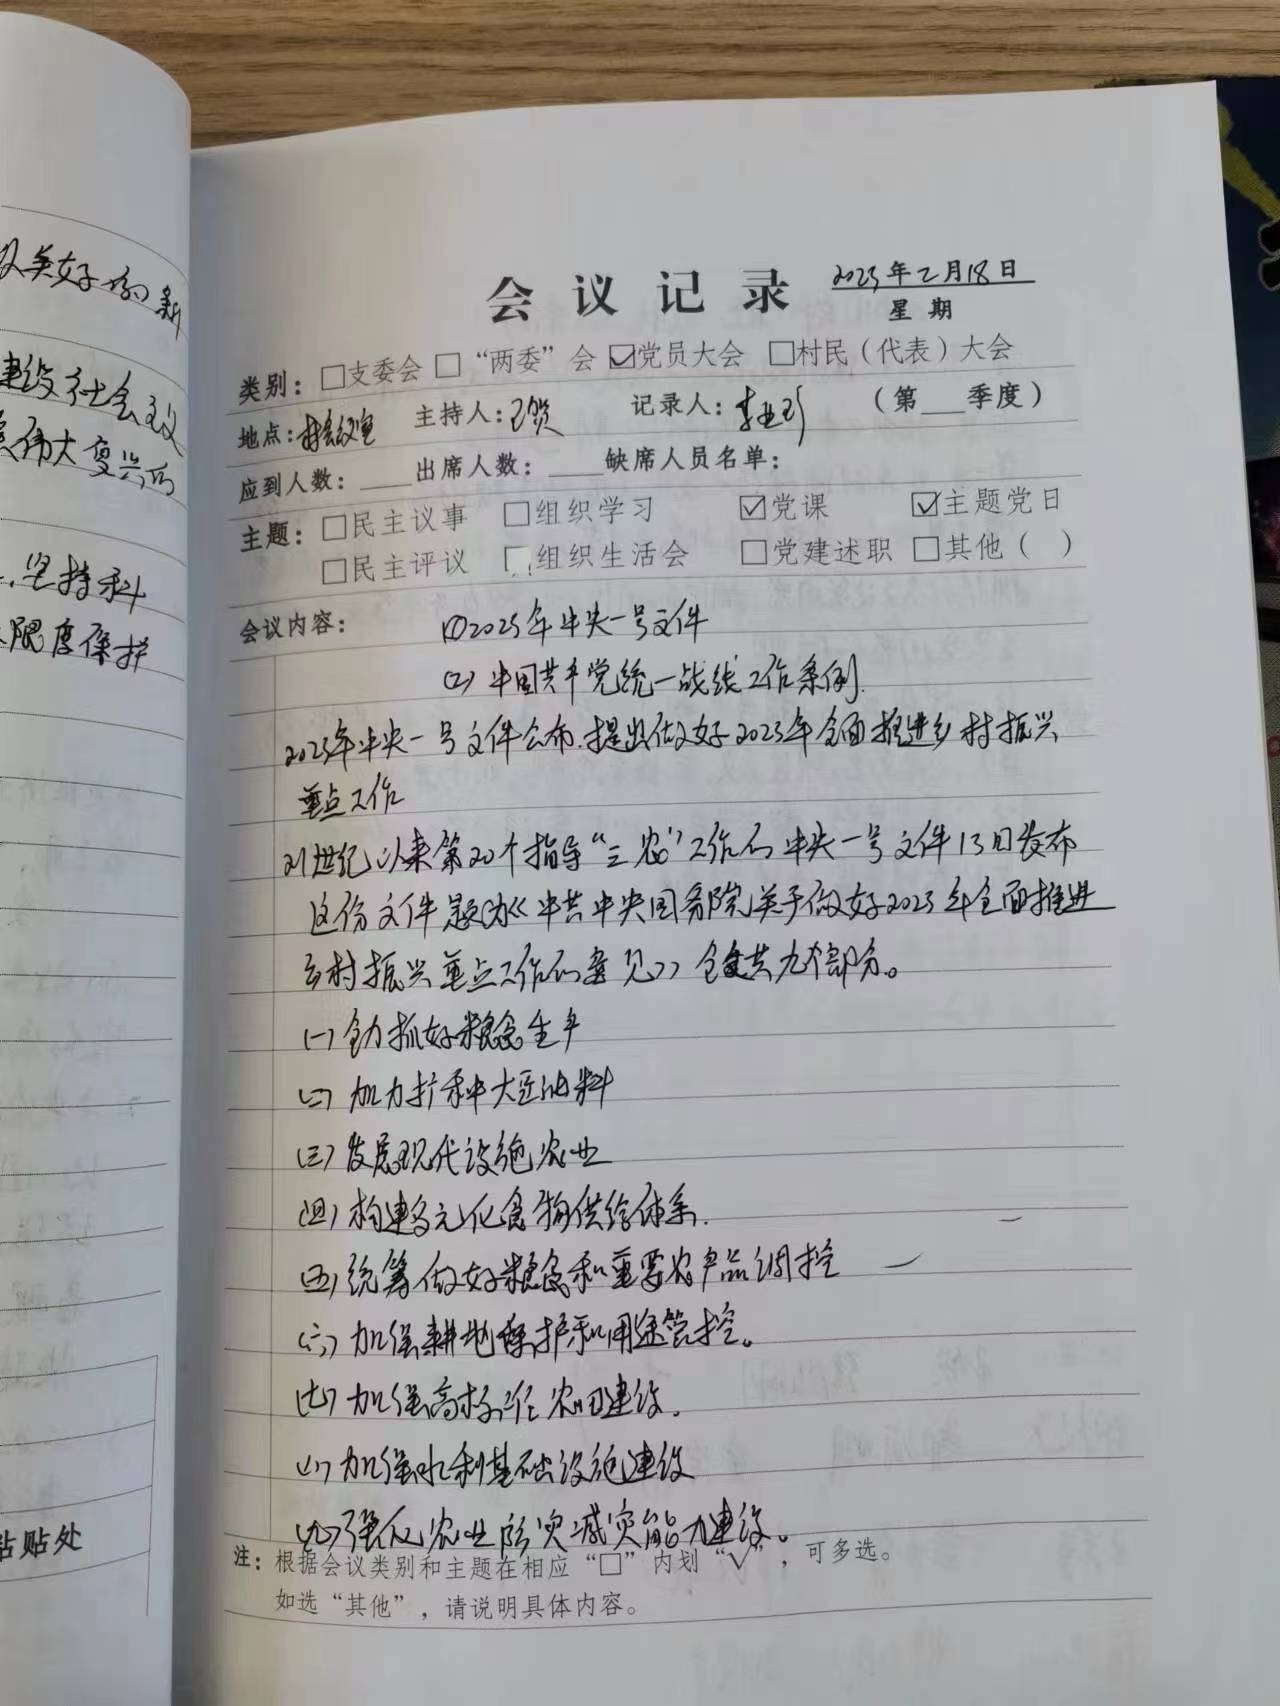 及美好的新
建设社会主义
伟大复兴的
坚持科
限度保护
粘贴处
会议记录 2023年2月18日
星期
类别：□支委会 □“两委”会 ☑党员大会 □村民（代表）大会
地点：村会议室 主持人： 记录人： （第__季度）
应到人数：____出席人数：____缺席人员名单：
主题：□民主议事 □组织学习 ☑党课 ☑主题党日
□民主评议 □组织生活会 □党建述职 □其他（ ）
会议内容： (1)2023年中央一号文件
(2)中国共产党统一战线工作条例.
2023年中央一号文件公布.提出做好2023年全面推进乡村振兴
重点工作
21世纪以来第20个指导“三农”工作的中央一号文件13日发布
这份文件题为《中共中央国务院关于做好2023年全面推进
乡村振兴重点工作的意见》全文共九个部分。
(一)全力抓好粮食生产
(二)加力扩种大豆油料
(三)发展现代设施农业
(四)构建多元化食物供给体系.
(五)统筹做好粮食和重要农产品调控
(六)加强耕地保护和用途管控。
(七)加强高标准农田建设.
(八)加强水利基础设施建设
(九)强化农业防灾减灾能力建设。
注：根据会议类别和主题在相应“□”内划“√”，可多选。
如选“其他”，请说明具体内容。